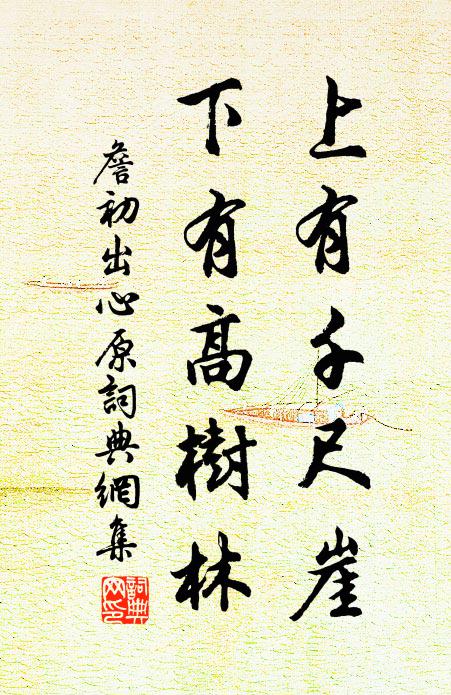 上有千尺崖
下有高樹林
詹初出心原詞典網集
詞典
网印